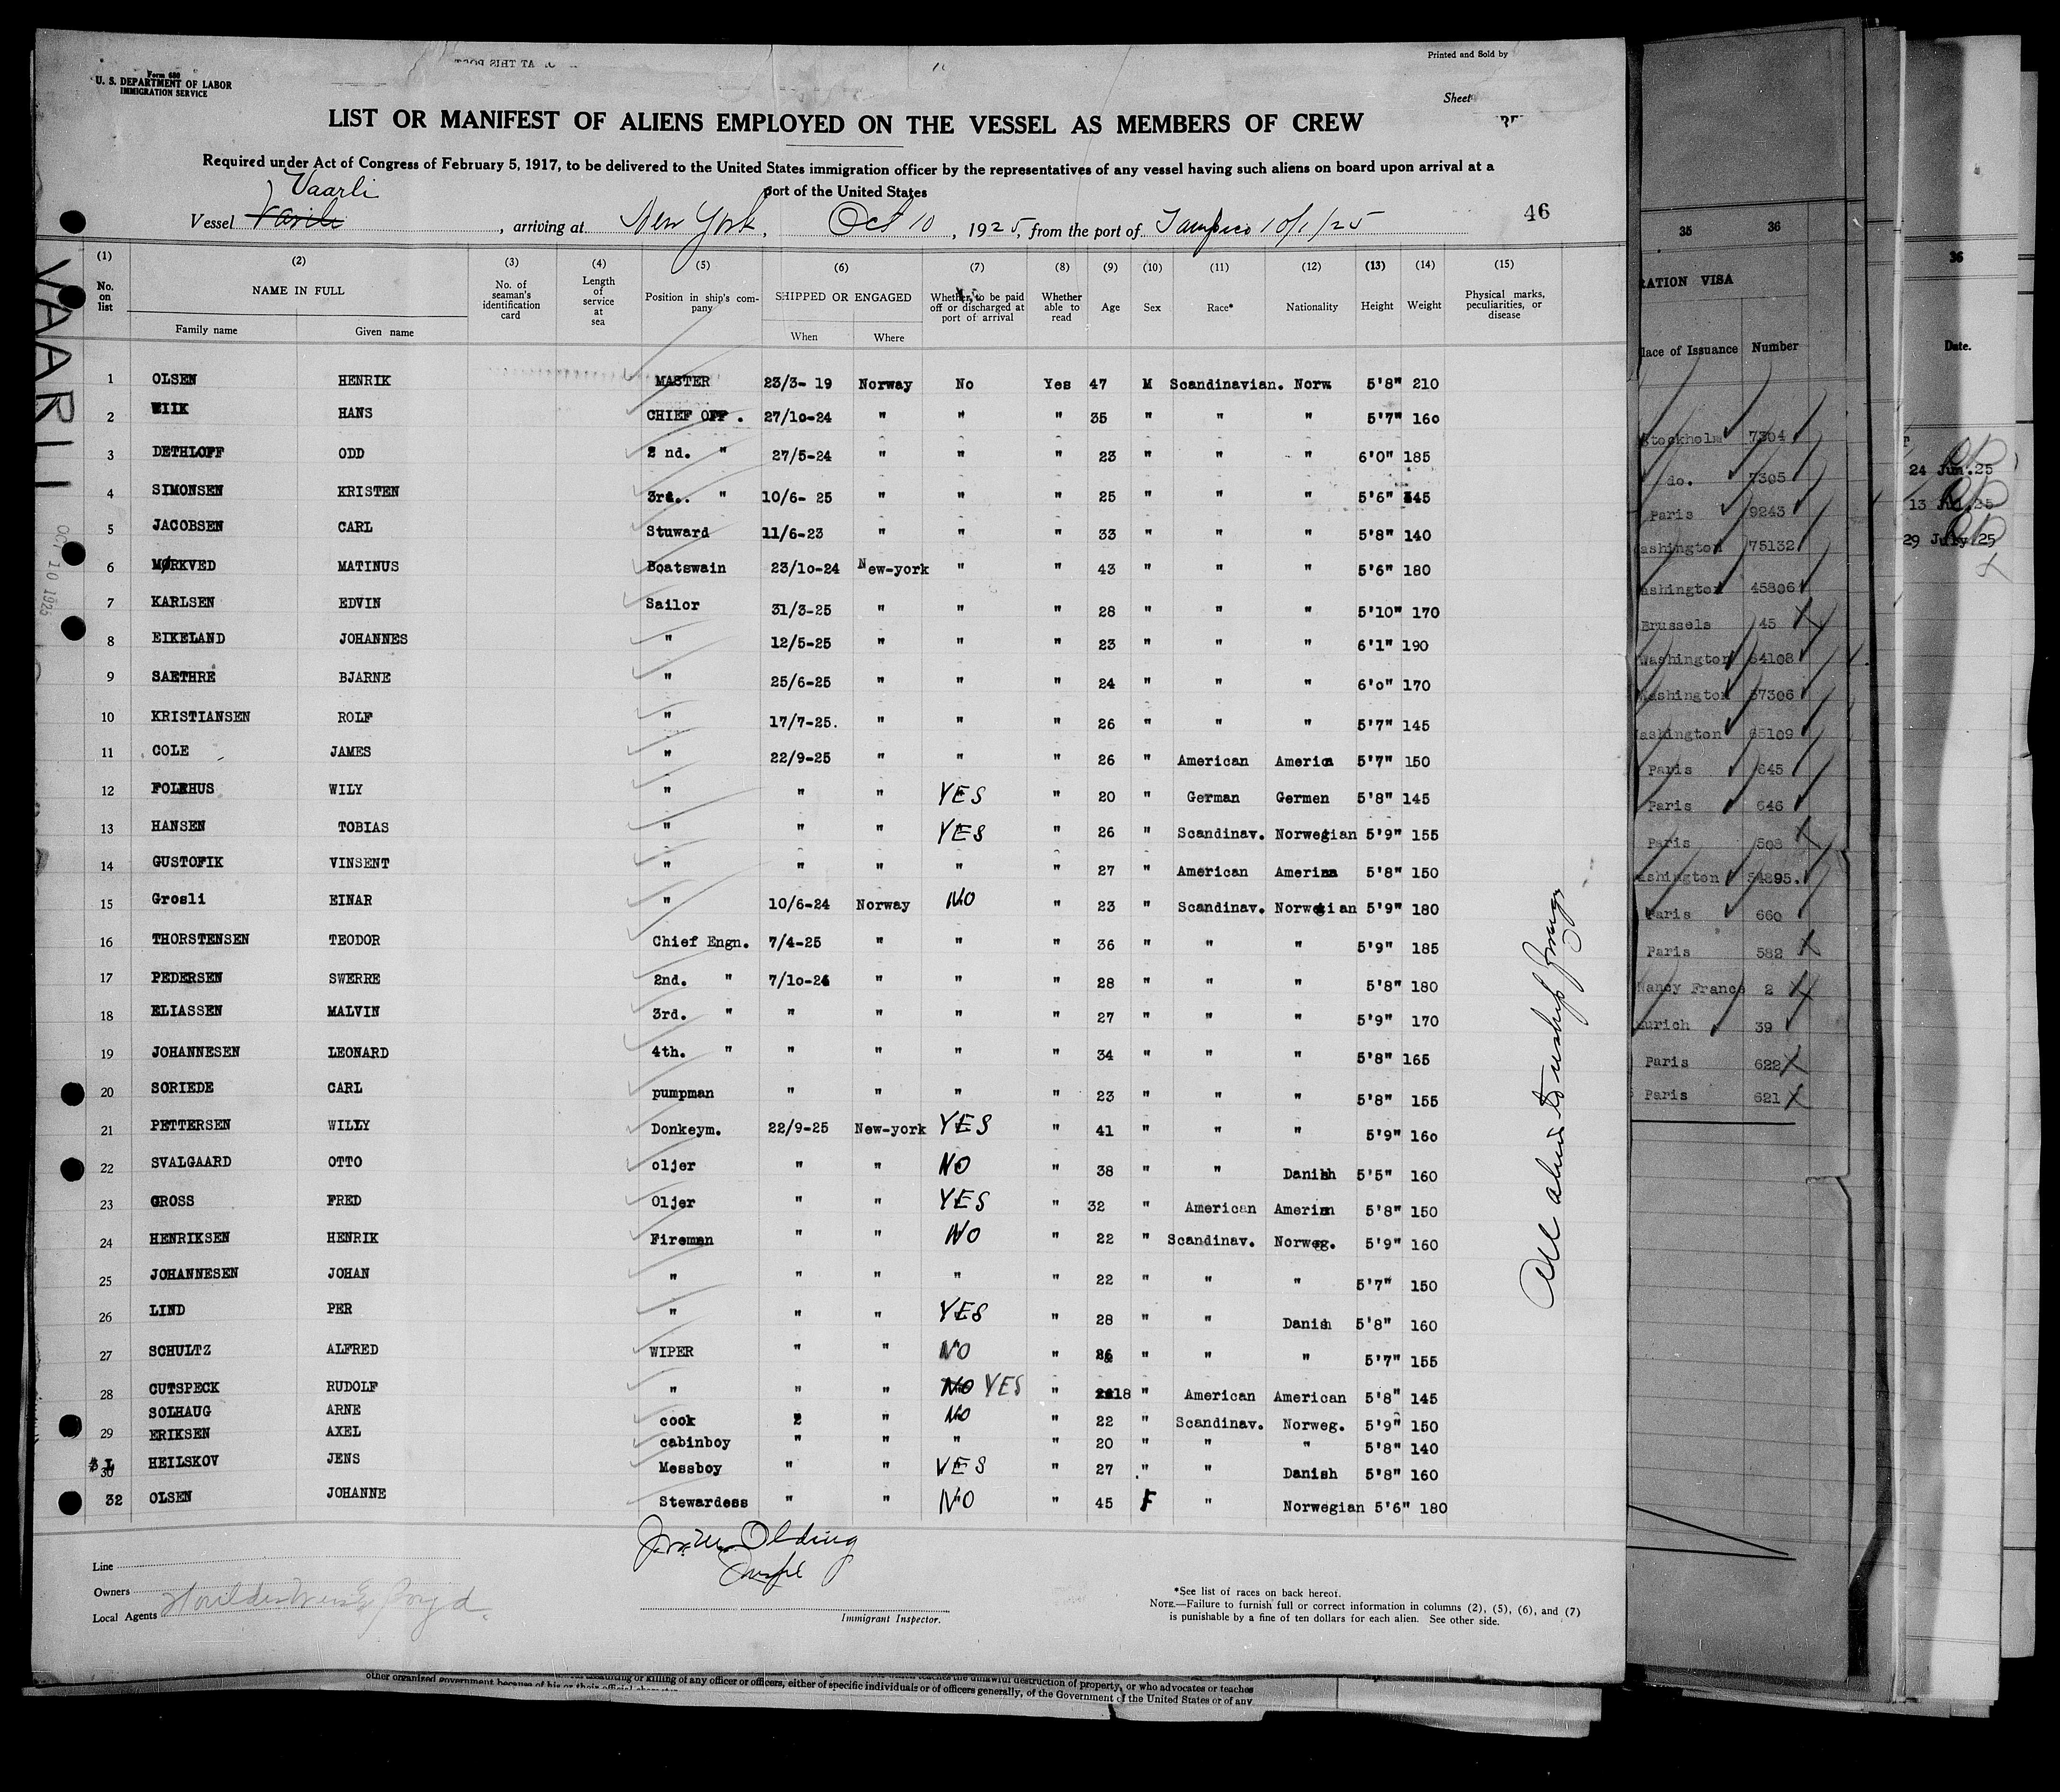 Form 680
U. S. DEPARTMENT OF LABOR
IMMIGRATION SERVICE
Printed and Sold by
Sheet
LIST OR MANIFEST OF ALIENS EMPLOYED ON THE VESSEL AS MEMBERS OF CREW
Required under Act of Congress of February 5, 1917, to be delivered to the United States immigration officer by the representatives of any vessel having such aliens on board upon arrival at a
port of the United States
Vaarli
Vessel, arriving at New York, Oct 10, 1925, from the port of Tampico 10/1/25
46
VAARLI
OCT 10 1925
(1) (2) (3) (4) (5) (6) (7) (8) (9) (10) (11) (12) (13) (14) (15)
No. on list NAME IN FULL Family name Given name No. of seaman's identification card Length of service at sea Position in ship's company SHIPPED OR ENGAGED When Where Whether to be paid off or discharged at port of arrival Whether able to read Age Sex Race* Nationality Height Weight Physical marks, peculiarities, or disease
1 OLSEN HENRIK MASTER 23/3- 19 Norway No Yes 47 M Scandinavian. Norw. 5'8" 210
2 WIIK HANS CHIEF OFF . 27/10-24 " " " 35 " " " 5'7" 160
3 DETHLOFF ODD 2 nd. " 27/5-24 " " " 23 " " " 6'0" 185
4 SIMONSEN KRISTEN 3rd.. " 10/6- 25 " " " 25 " " " 5'6" 145
5 JACOBSEN CARL Stuward 11/6-23 " " " 33 " " " 5'8" 140
6 MØRKVED MATINUS Boatswain 23/10-24 New-york " " 43 " " " 5'6" 180
7 KARLSEN EDVIN Sailor 31/3-25 " " " 28 " " " 5'10" 170
8 EIKELAND JOHANNES " 12/5-25 " " " 23 " " " 6'1" 190
9 SAETHRE BJARNE " 25/6-25 " " " 24 " " " 6'0" 170
10 KRISTIANSEN ROLF " 17/7-25. " " " 26 " " " 5'7" 145
11 COLE JAMES " 22/9-25 " " " 26 " American America 5'7" 150
12 FOLKHUS WILY " " " YES " 20 " German Germen 5'8" 145
13 HANSEN TOBIAS " " " YES " 26 " Scandinav. Norwegian 5'9" 155
14 GUSTOFIK VINSENT " " " " " 27 " American 5'8" 150
15 Grosli EINAR " 10/6-24 Norway NO " 23 " Scandinav. Norwegian 5'9" 180
16 THORSTENSEN TEODOR Chief Engn. 7/4-25 " " " 36 " " " 5'9" 185
17 PEDERSEN SWERRE 2nd. " 7/10-24 " " " 28 " " " 5'8" 180
18 ELIASSEN MALVIN 3rd. " " " " " 27 " " " 5'9" 170
19 JOHANNESEN LEONARD 4th. " " " " " 34 " " " 5'8" 165
20 SORIEDE CARL pumpman " " " " 23 " " " 5'8" 155
21 PETTERSEN WILLY Donkeym. 22/9-25 New-york YES " 41 " " " 5'9" 160
22 SVALGAARD OTTO oljer " " NO " 38 " " Danish 5'5" 160
23 GROSS FRED Oljer " " YES " 32 " American 5'8" 150
24 HENRIKSEN HENRIK Fireman " " NO " 22 " Scandinav. Norweg. 5'9" 160
25 JOHANNESEN JOHAN " " " " " 22 " " " 5'7" 150
26 LIND PER " " " YES " 28 " " Danish 5'8" 160
27 SCHULTZ ALFRED WIPER " " NO " 26 " " " 5'7" 155
28 CUTSPECK RUDOLF " " " NO YES " 18 " American American 5'8" 145
SOLHAUG ARNE cook " NO " 22 " Scandinav. Norweg. 5'9" 150
29 ERIKSEN AXEL cabinboy " " " " 20 " " " 5'8" 140
30 HEILSKOV JENS Messboy " " YES " 27 " " Danish 5'8" 160
32 OLSEN JOHANNE Stewardess " " NO " 45 F " Norwegian 5'6" 180
Line
Owners
Local Agents
Immigrant Inspector.
*See list of races on back hereof.
NOTE.—Failure to furnish full or correct information in columns (2), (5), (6), and (7)
is punishable by a fine of ten dollars for each alien. See other side.
other organized government because of his or their official
assaulting or killing of any officer or officers, either of specific individuals or of officers generally, of the Government of the United States or of any
destruction of property, or who advocates or teaches
35 36
RATION VISA
lace of Issuance Number
Stockholm 7304
do. 7305
Paris 9243
ashington 75132
ashington 45806
Brussels 45
Washington 64108
Washington 37306
ashington 65109
Paris 645
Paris 646
Paris 508
ashington 54895.
Paris 660
Paris 582
Nancy France 2
urich 39
Paris 622
Paris 621
36
Date.
24 Jun.25
13 Jul.25
29 July.25